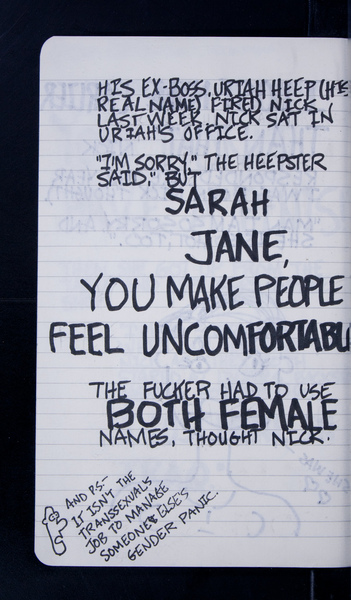 HIS EX-BOSS, URIAH HEEP (HIS
REAL NAME) FIRED NICK
LAST WEEK. NICK SAT IN
URIAH'S OFFICE.
"I'M SORRY," THE HEEPSTER
SAID, "BUT
SARAH
JANE,
YOU MAKE PEOPLE
FEEL UNCOMFORTABL
THE FUCKER HAD TO USE
BOTH FEMALE
NAMES, THOUGHT NICK.
AND P.S.-
IT ISN'T THE
TRANSSEXUALS
JOB TO MANAGE
SOMEONE ELSE'S
GENDER PANIC.